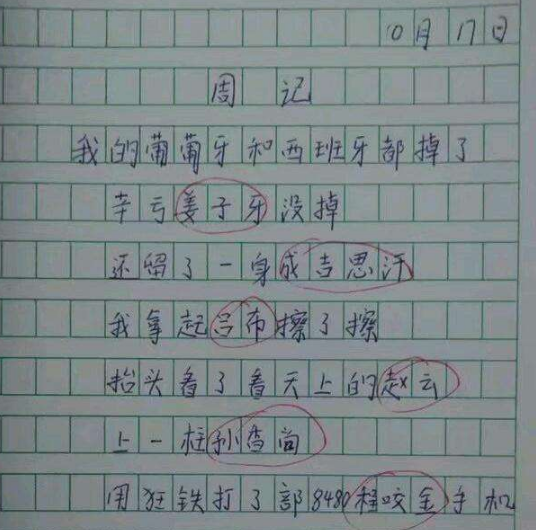 10月17日
周记
我的葡萄牙和西班牙都掉了
幸亏姜子牙没掉
还留了一身成吉思汗
我拿起吕布擦了擦
抬头看了看天上的赵云
上一柱孙香尚
用狂铁打了部8480程咬金手机